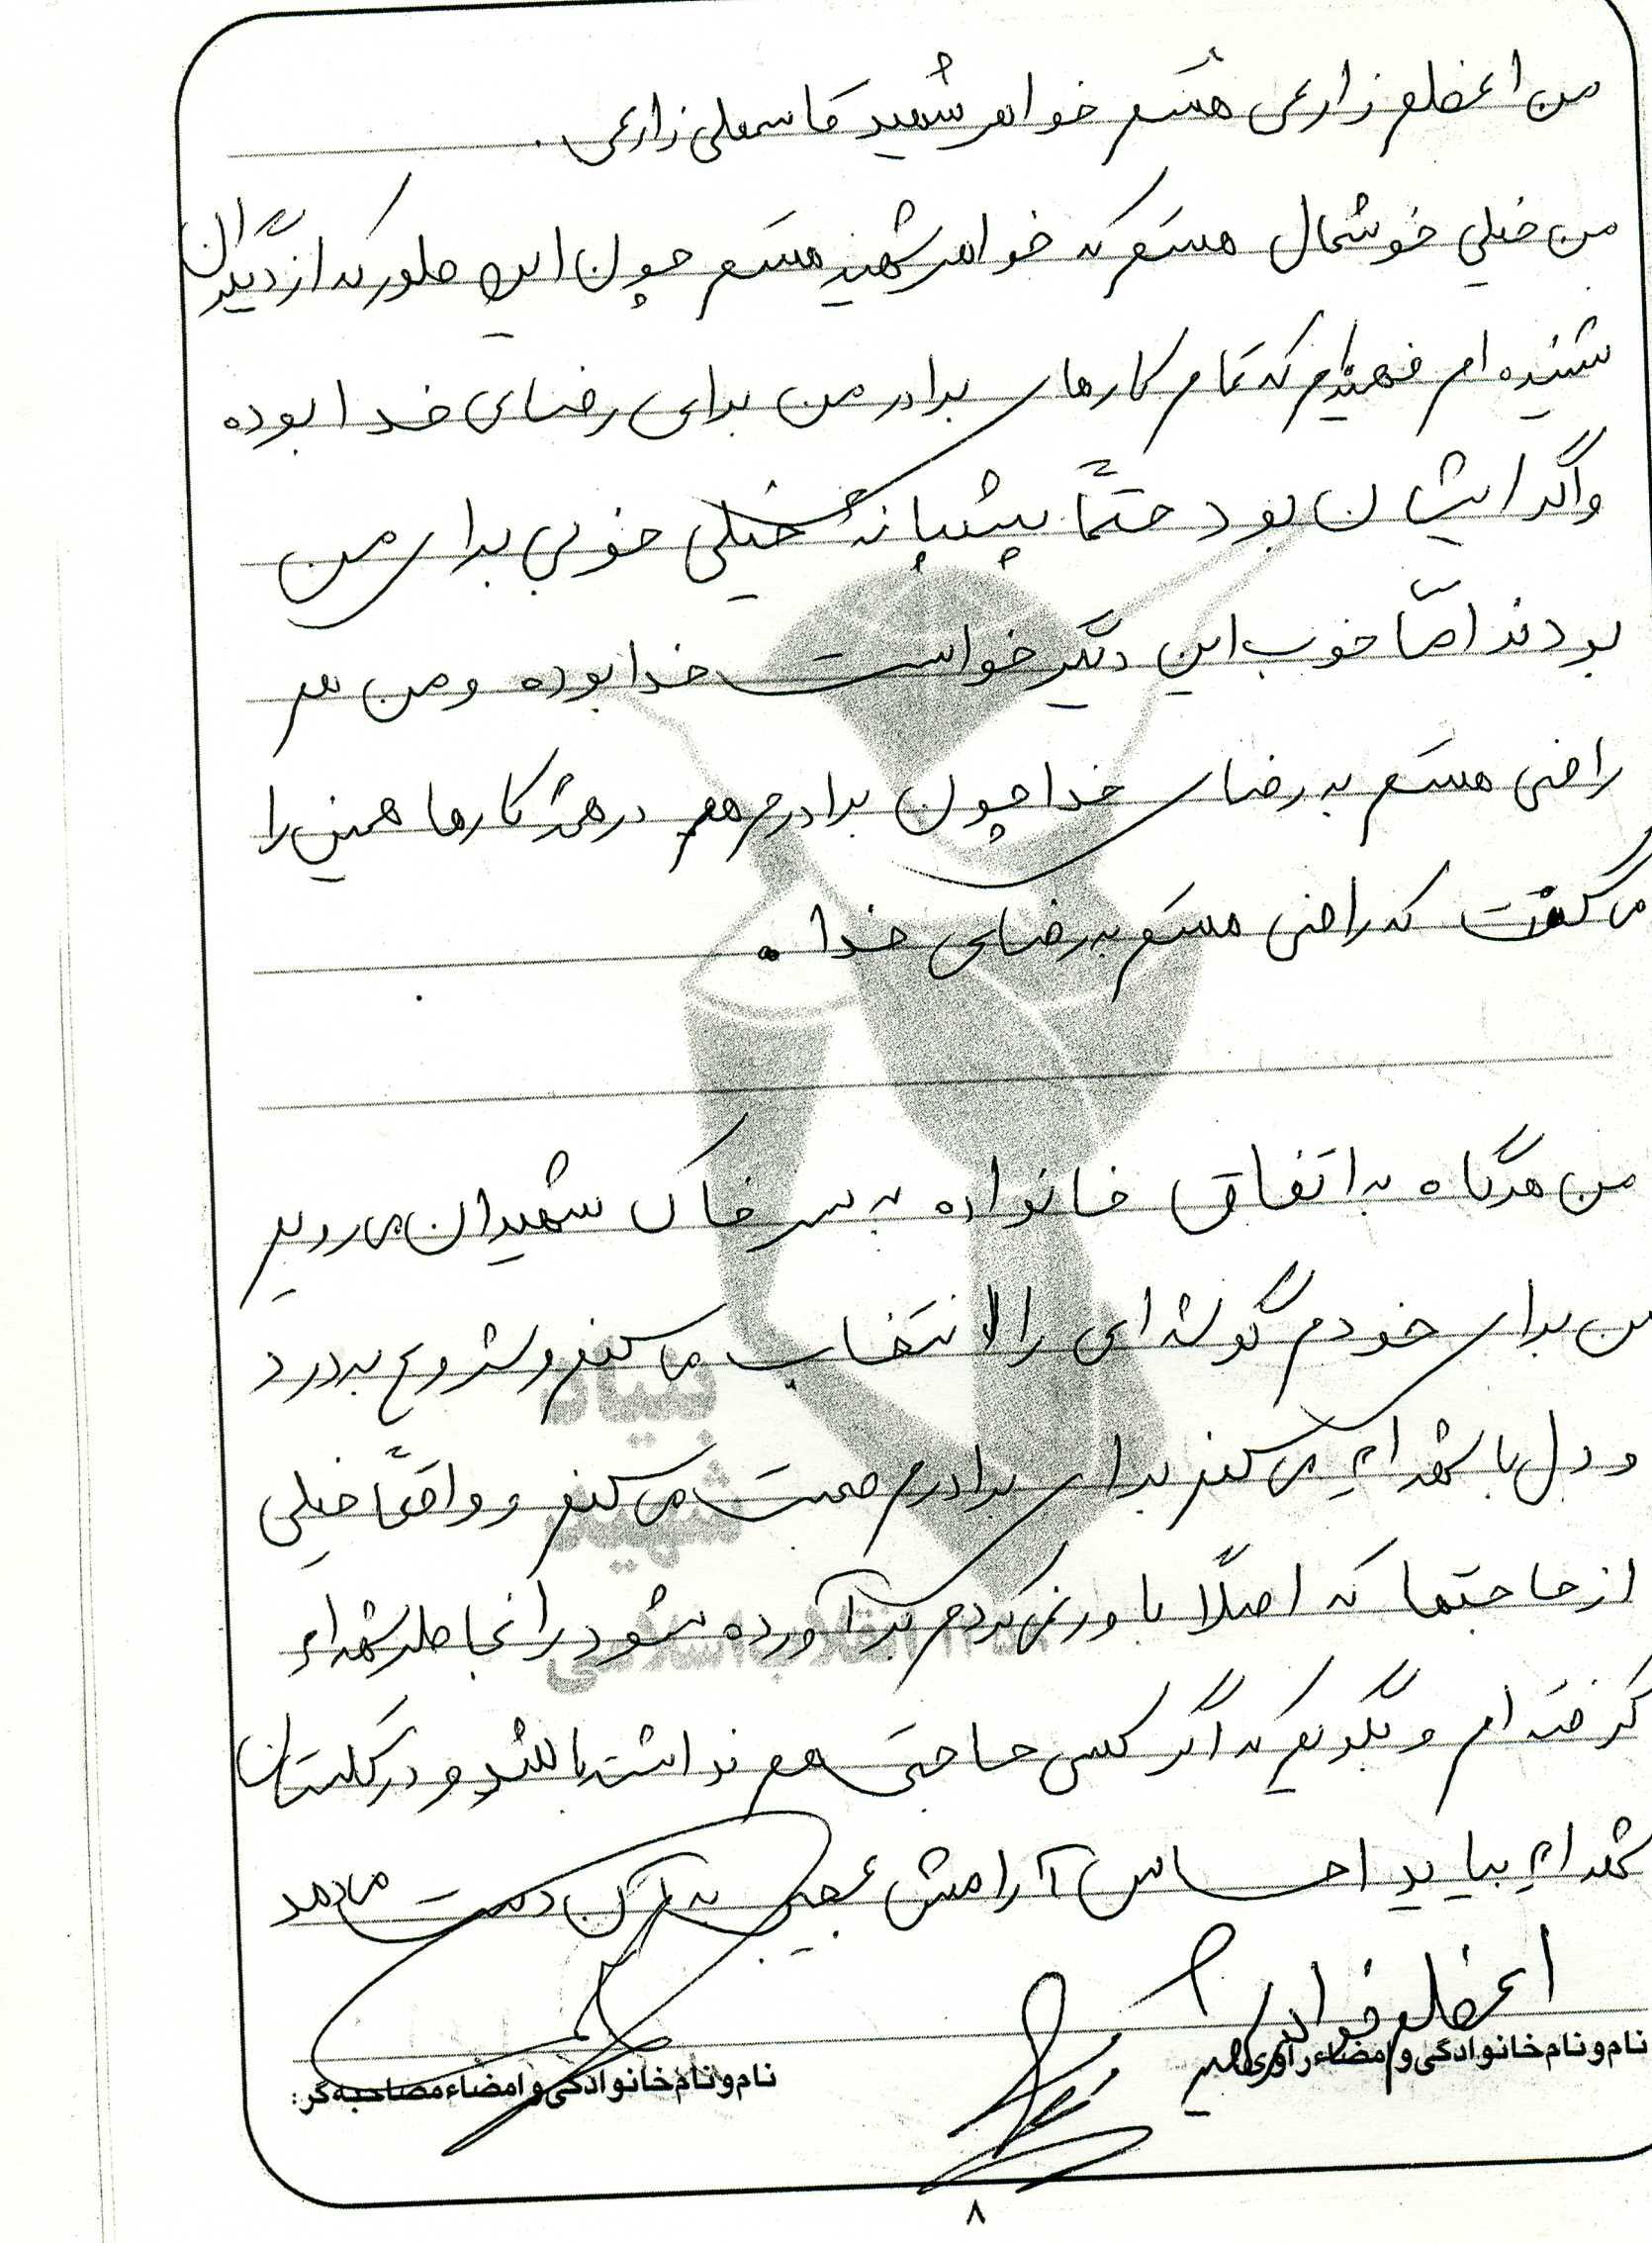 من اعظم زارعی هستم خواهر شهید قاسمعلی زارعی.
من خیلی خوشحال هستم که خواهر شهید هستم چون این طور که از دیگران
شنیده ام فهمیدم که تمام کارهای برادر من برای رضای خدا بوده
واگر ایشان بود حتماً پشتبانه خیلی خوبی برای من
بودند امّا خوب این دیگر خواست خدا بوده و من هم
راضی هستم به رضای خدا چون برادرم هم در همه کارها همین را
می گفت که راضی هستم به رضای خدا.
من هرگاه به اتفاق خانواده به سر خاک شهیدان می رویم
من برای خودم گوشه ای را انتخاب می کنم و شروع به درد
و دل با شهداء می کنم برای برادرم صحبت می کنم و واقعاً خیلی
از حاجتها که اصلاً باور نمی کردم برآورده شود را از شهداء
گرفته ام و بگویم که اگر کسی حاجتی هم نداشته باشد و در گلستان
شهداء بیاید احساس آرامش عجیبی به آن دست می دهد
اعظم خواهر شهید
نام و نام خانوادگی و امضاء راوی:
نام و نام خانوادگی و امضاء مصاحبه گر:
بنیاد
شهید
انقلاب اسلامی
۸